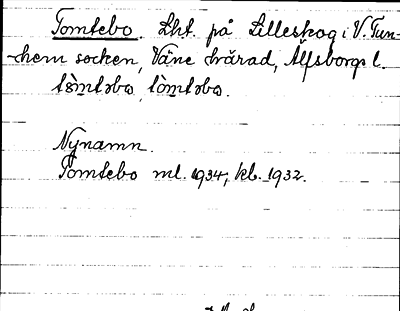 Tomtebo. Lht. på Lilleskog i V. Tun-
-hem socken, Väne härad, Älfsborgs l.
tòmtəbo, tòmtəbo.
Nynamn.
Tomtebo ml. 1934, kb. 1932.